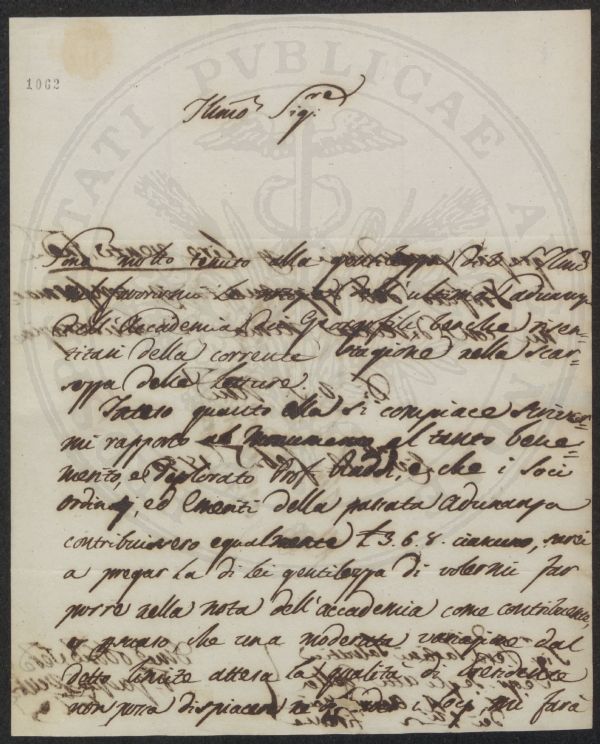 1062
Illmo Sigre
Sono molto tenuto alla gentilezza di V. S. Illma
nel favorirmi le notizie dell'ultima Adunanza
dell'Accademia dei Georgofili benche risen=
titasi della corrente stagione nella scar=
sezza delle Letture.
Inteso quanto ella si compiace scriver=
mi rapporto al Monumento al tanto bene=
merito, e deplorato Prof. Raddi, e che i Soci
ordinarj, ed Emeriti della passata Adunanza
contribuissero egualmente £ 3. 6. 8. ciascuno, sarei
a pregar La di lei gentilezza di volermi far
porre nella nota dell'accademia come contribuente,
che una moderata variazione dal
detto limite attesa la qualità di
non possa dispiacere i Socj, mi farà